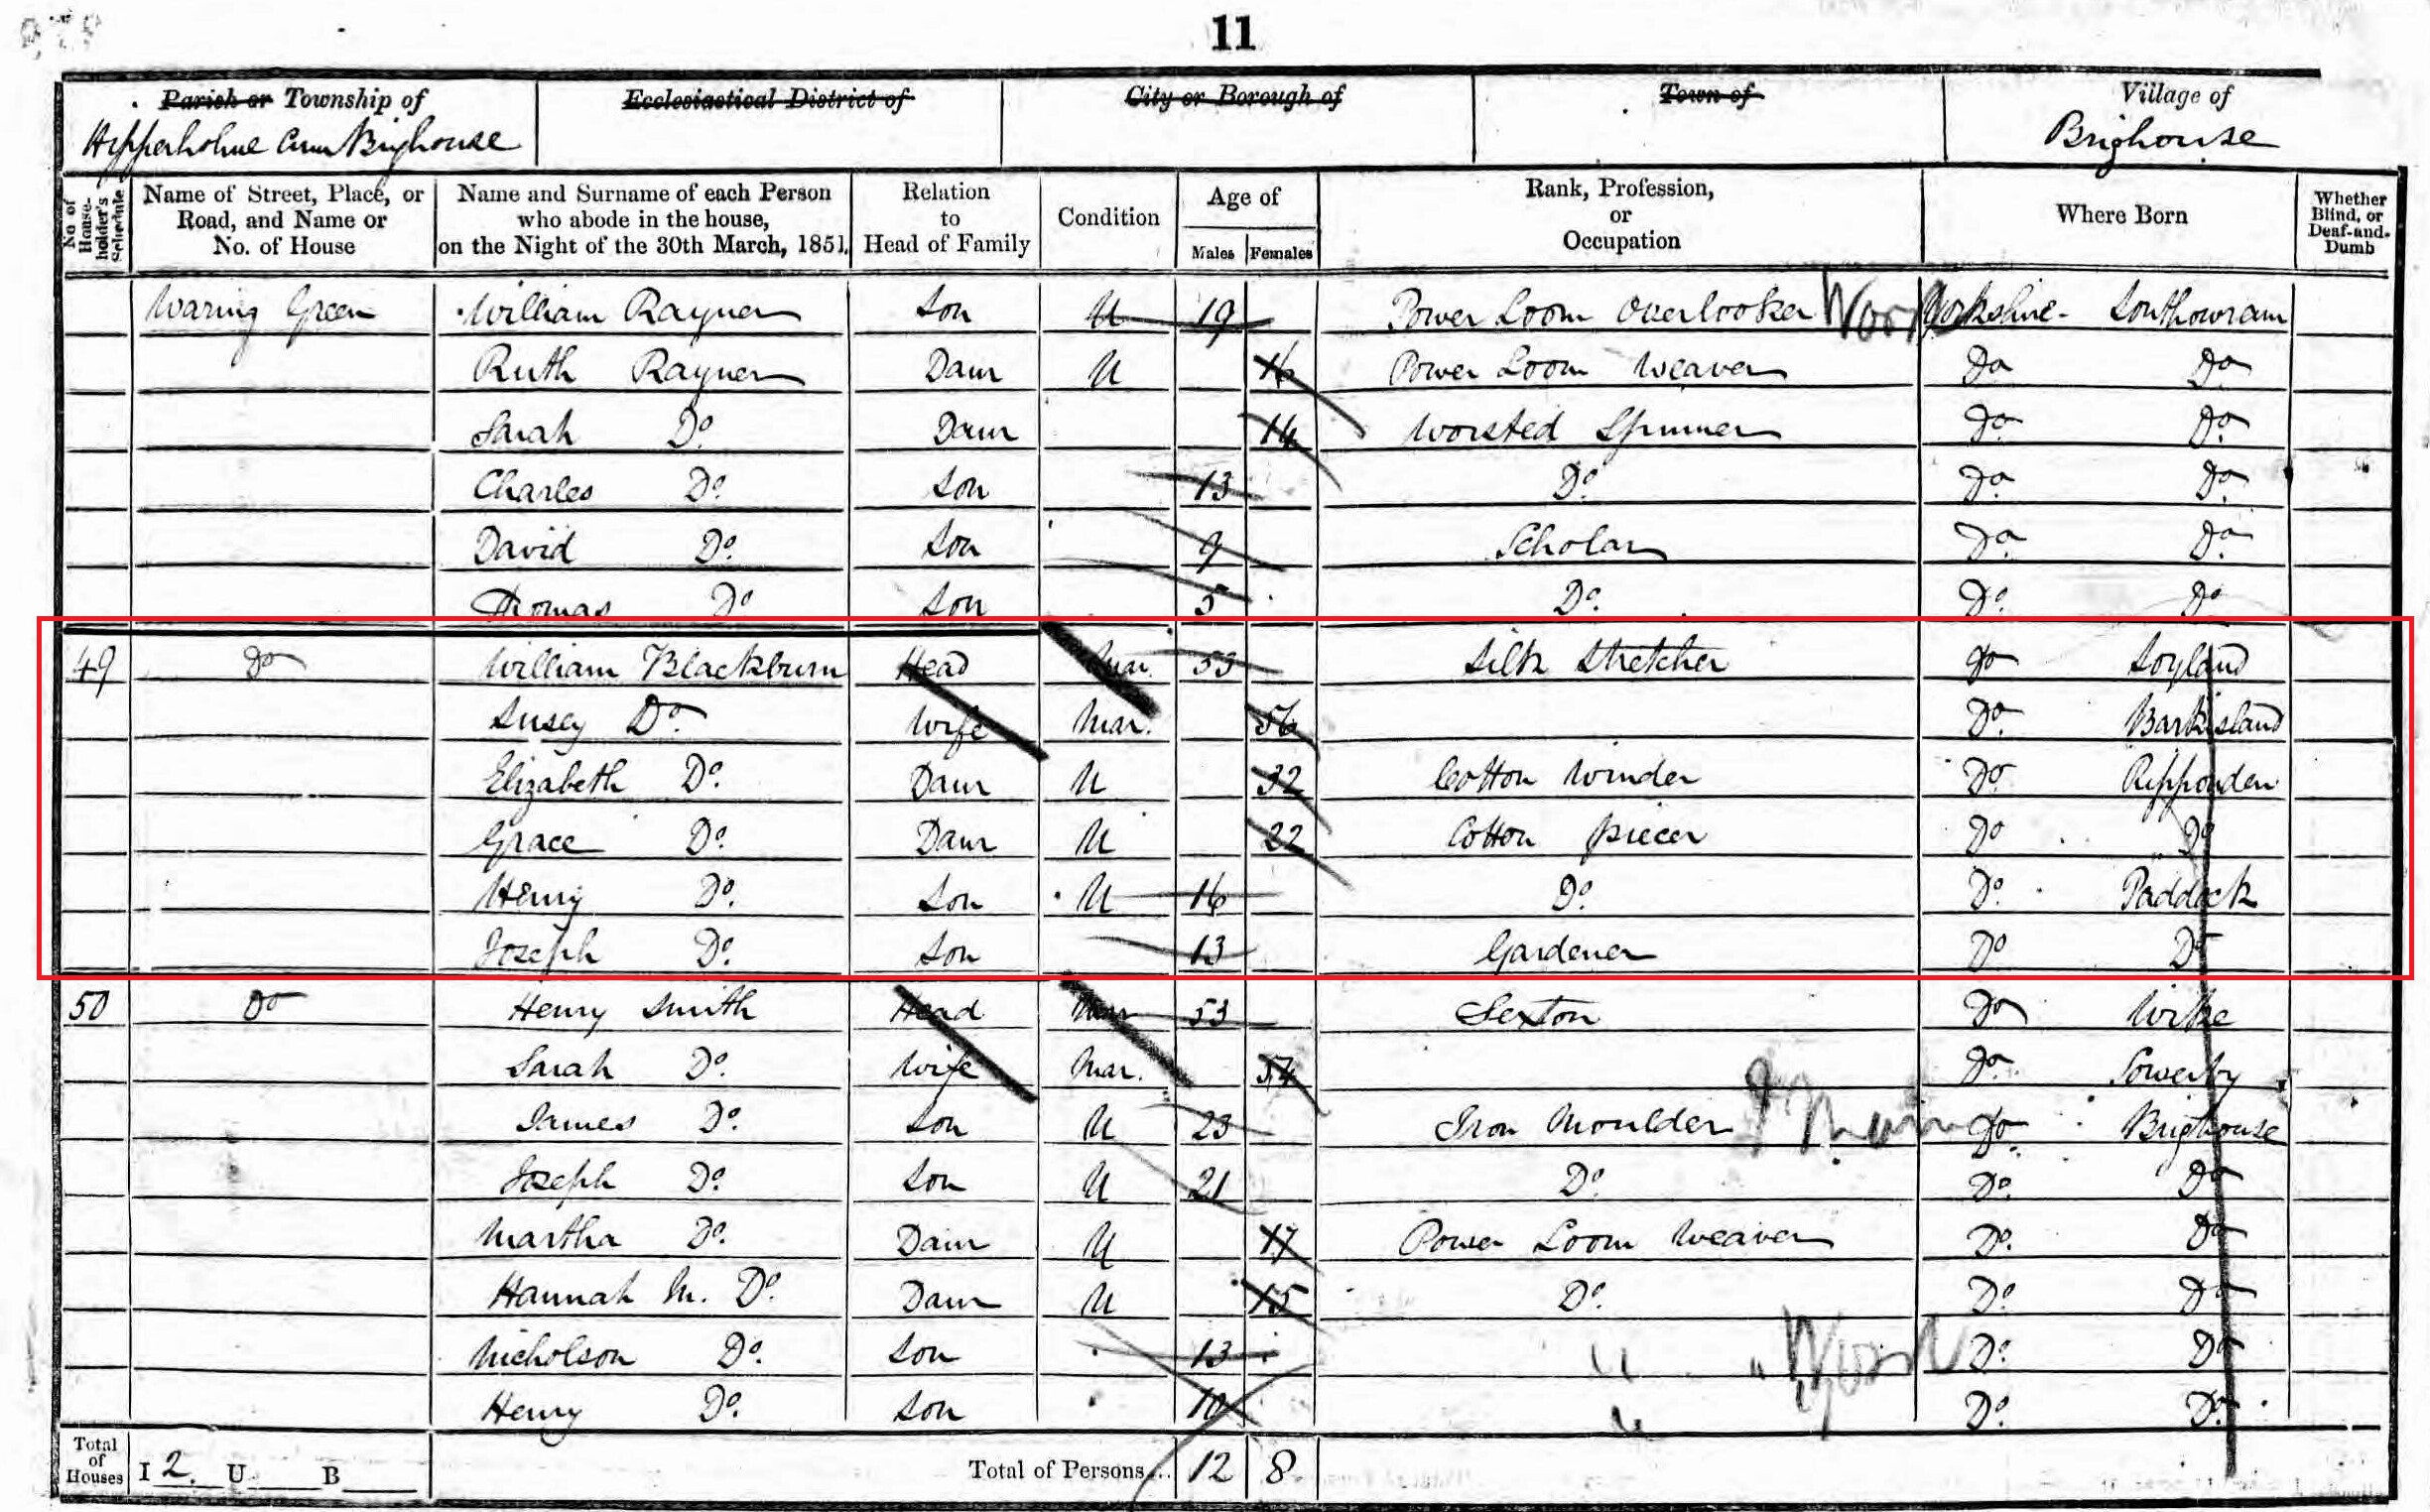 11
Parish or Township of Ecclesiastical District of City or Borough of Town of Village of
Hipperholme Cum Brighouse Brighouse
No of House-holder's Schedule Name of Street, Place, or Road, and Name or No. of House Name and Surname of each Person who abode in the house, on the Night of the 30th March, 1851. Relation to Head of Family Condition Age of Males Females Rank, Profession, or Occupation Where Born Whether Blind, or Deaf-and-Dumb
Waring Green William Rayner Son U 19 Power Loom Overlooker Yorkshire - Southowram
Ruth Rayner Daur U 16 Power Loom Weaver Do Do
Sarah Do Daur 14 Worsted Spinner Do Do
Charles Do Son 13 Do Do Do
David Do Son 9 Scholar Do Do
Thomas Do Son 5 Do Do Do
49 Do William Blackburn Head Mar. 53 Silk Stretcher Do Soyland
Susey Do Wife Mar. 56 Do Barkisland
Elizabeth Do Daur U 32 Cotton Winder Do Ripponden
Grace Do Daur U 22 Cotton Piecer Do Do
Henry Do Son U 16 Do Do Paddock
Joseph Do Son 13 Gardener Do Do
50 Do Henry Smith Head Mar 53 Sexton Do Wike
Sarah Do Wife Mar. 54 Do Sowerby
James Do Son U 23 Iron Moulder Do Brighouse
Joseph Do Son U 21 Do Do Do
Martha Do Daur U 17 Power Loom Weaver Do Do
Hannah M. Do Daur U 15 Do Do Do
Nicholson Do Son 13 " " Do Do
Henry Do Son 10 " Do Do
Total of Houses I 2. U B Total of Persons... 12 8